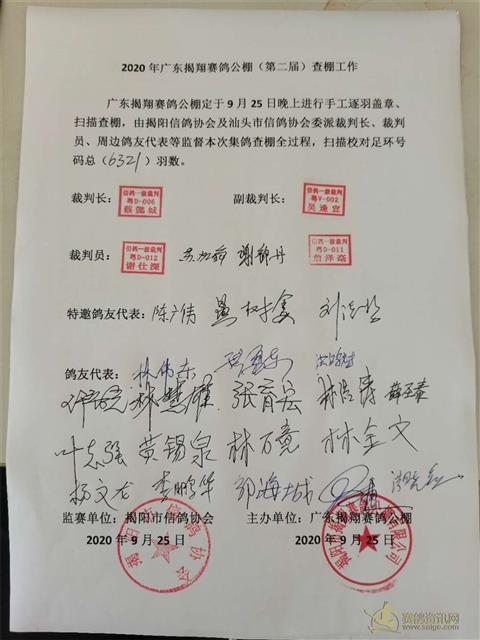 2020年广东揭翔赛鸽公棚（第二届）查棚工作
广东揭翔赛鸽公棚定于9月25日晚上进行手工逐羽盖章、
扫描查棚，由揭阳信鸽协会及汕头市信鸽协会委派裁判长、裁判
员、周边鸽友代表等监督本次集鸽查棚全过程，扫描校对足环号
码总（6321）羽数。
裁判长： 信鸽一级裁判 粤D-006 副裁判长： 信鸽一级裁判 粤V-002 吴逢宣
裁判员： 信鸽一级裁判 粤D-012 谢仕深 信鸽一级裁判 粤D-011
特邀鸽友代表：陈广伟
鸽友代表：林伟东
张育宏
叶志强 黄锡泉 林万意 林金文
杨文龙 李鹏华 邱海城
监赛单位：揭阳市信鸽协会 主办单位：广东揭翔赛鸽公棚
2020年9月25日 2020年9月25日
赛鸽资讯网
www.saige.com